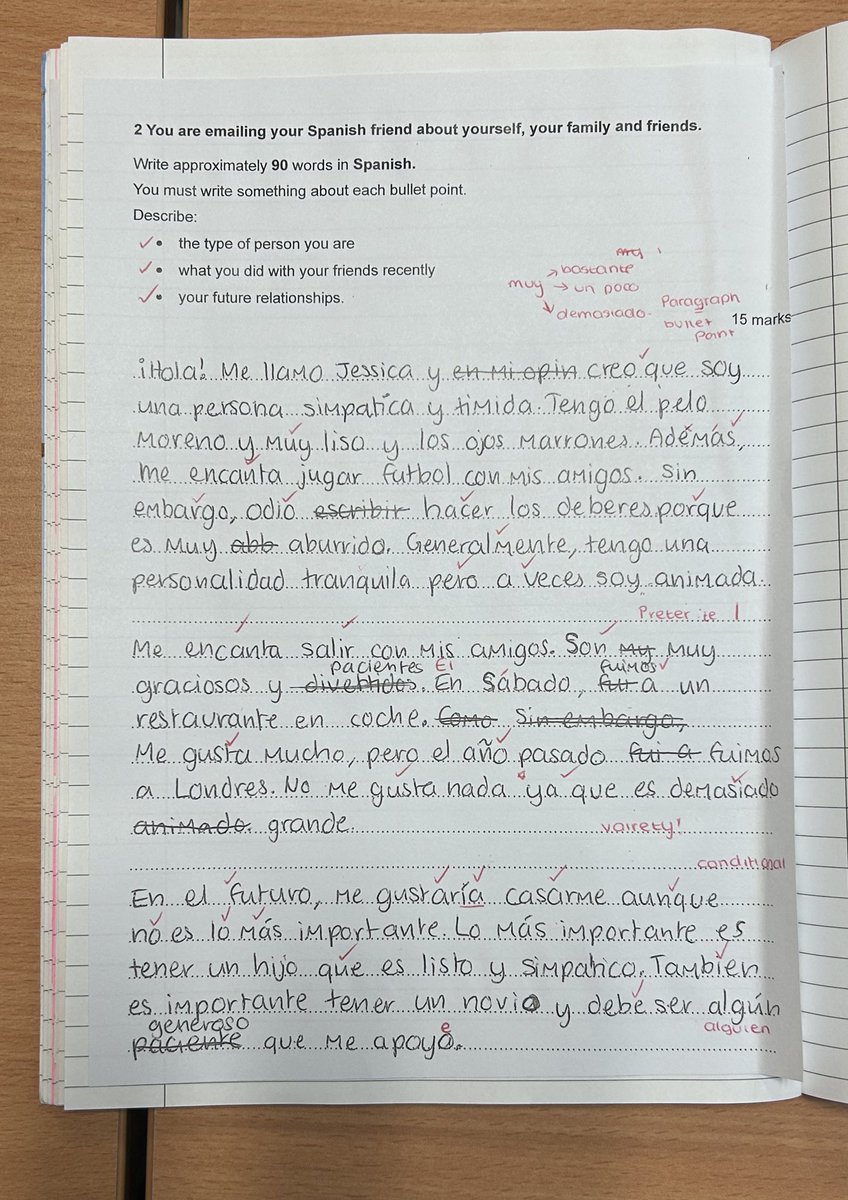 2 You are emailing your Spanish friend about yourself, your family and friends.
Write approximately 90 words in Spanish.
You must write something about each bullet point.
Describe:
✓• the type of person you are
✓• what you did with your friends recently
✓• your future relationships.
muy → bastante
→ un poco
→ demasiado.
Paragraph
bullet
point
15 marks
¡Hola! Me llamo Jessica y en mi opin creo que soy
una persona simpatica y timida. Tengo el pelo
moreno y muy liso y los ojos marrones. Además,
me encanta jugar futbol con mis amigos. Sin
embargo, odio escribir hacer los deberes porque
es muy abb aburrido. Generalmente, tengo una
personalidad tranquila pero a veces soy animada.
Preterite 1
Me encanta salir con mis amigos. Son my muy
pacientes El fuimos
graciosos y divertidos. En Sábado, fui a un
restaurante en coche. Como Sin embargo,
Me gusta mucho, pero el año pasado fui a fuimos
a Londres. No me gusta nada ya que es demasiado
animado. grande.
vairety!
conditional
En el futuro, me gustaría casarme aunque
no es lo más importante. Lo más importante es
tener un hijo que es listo y simpatico. También
es importante tener un novio y debe ser algún
generoso alguien
paciente que me apoyo.
e